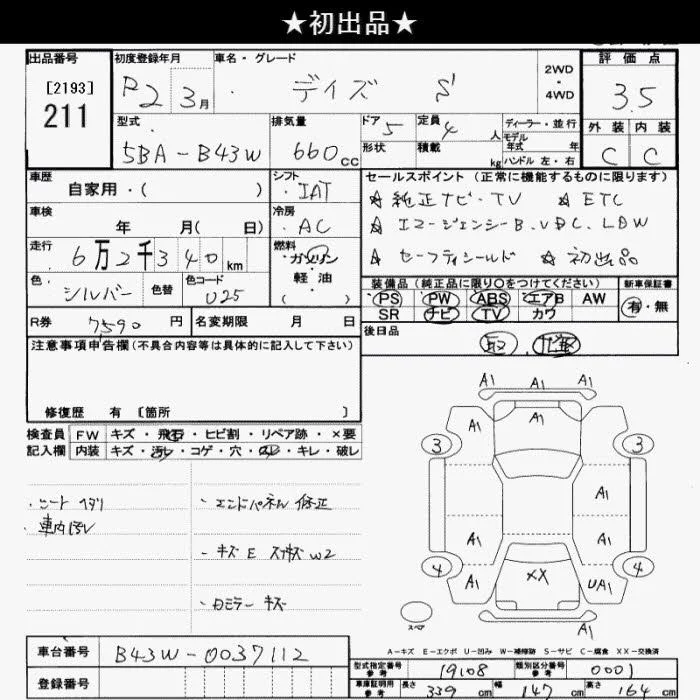 ★初出品★
出品番号 初度登録年月 車名・グレード 評価点
[2193]
211
R2 3月 デイズ S 2WD・4WD 3.5
外装 内装
C C
型式 排気量 ドア 定員 ディーラー・並行
5BA-B43W 660cc 5 4人 モデル年式 年
形状 積載 kg ハンドル 左・右
車歴 シフト セールスポイント(正常に機能するものに限ります)
自家用・( ) IAT ☆純正ナビ・TV ☆ETC
車検 冷房 ☆エマージェンシーB.VDC.LDW
年 月( 日) AC ☆セーフティシールド ☆初出品
走行 燃料
6万2千340km ガソリン・軽油( )
色 色替 色コード 装備品(純正品に限り○をつけてください) 新車保証書
シルバー U25 PS PW ABS エアB AW 有・無
SR ナビ TV カワ
R券 7590円 名変期限 月 日 後日品
取 記簿
注意事項申告欄(不具合内容等は具体的に記入して下さい)
修復歴 有 〔箇所 〕
検査員 FW キズ・飛石・ヒビ割・リペア跡・×要
記入欄 内装 キズ・汚レ・コゲ・穴・スレ・キレ・破レ
・シートヘタリ
・車内汚レ
・エンドパネル修正
・キズ E スリキズ W2
・Dミラーキズ
A1 A1 A1
A1 A1
3 3
A1
A1 A1
4 4
A1 XX UA1
A1
スペア
A-キズ E-エクボ U-凹み W-補修跡 S-サビ C-腐食 XX-交換済
車台番号 B43W-0037112
登録番号
型式指定番号 参考 19108 類別区分番号 参考 0001
車庫証明用 参考 長さ 339cm 幅 147cm 高さ 164cm